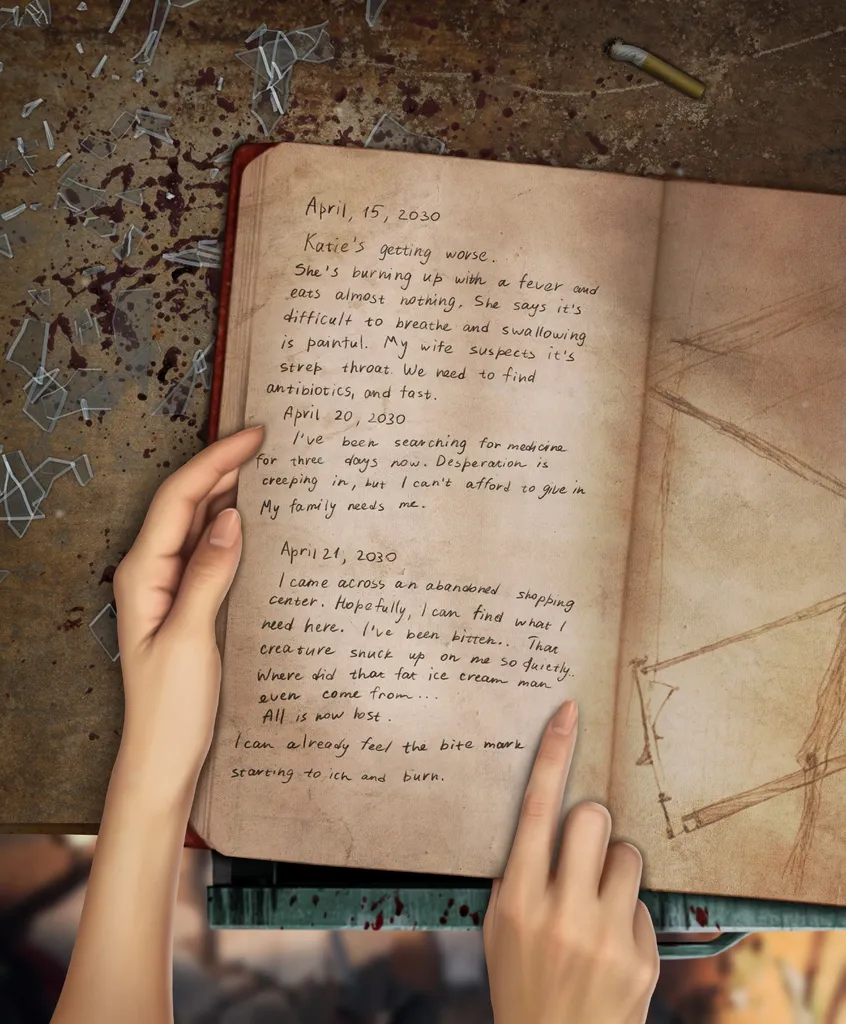 April, 15, 2030
Katie's getting worse.
She's burning up with a fever and
eats almost nothing. She says it's
difficult to breathe and swallowing
is painful. My wife suspects it's
strep throat. We need to find
antibiotics, and fast.
April 20, 2030
I've been searching for medicine
for three days now. Desperation is
creeping in, but I can't afford to give in
My family needs me.
April 21, 2030
I came across an abandoned shopping
center. Hopefully, I can find what I
need here. I've been bitten.. That
creature snuck up on me so quietly..
Where did that fat ice cream man
even come from...
All is now lost.
I can already feel the bite mark
starting to ich and burn.